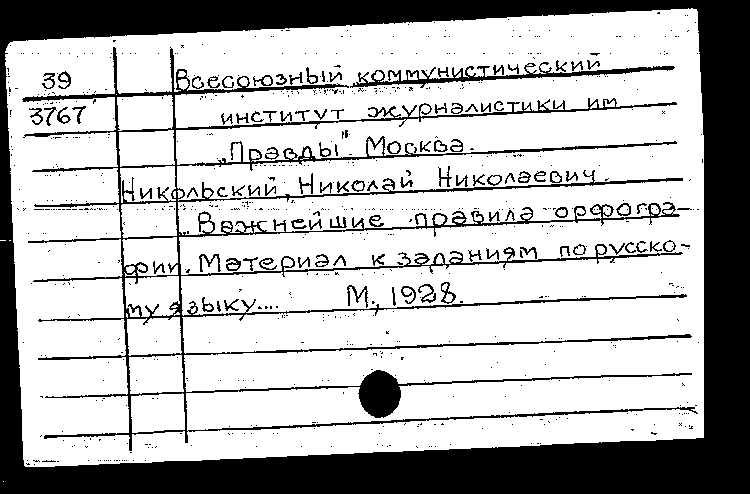 39 Всесоюзный коммунистический
3767 институт журналистики им
„Правды" Москва.
Никольский, Николай Николаевич.
Важнейшие правила орфогра-
фии. Материал к заданиям по русско-
му языку.... М., 1928.